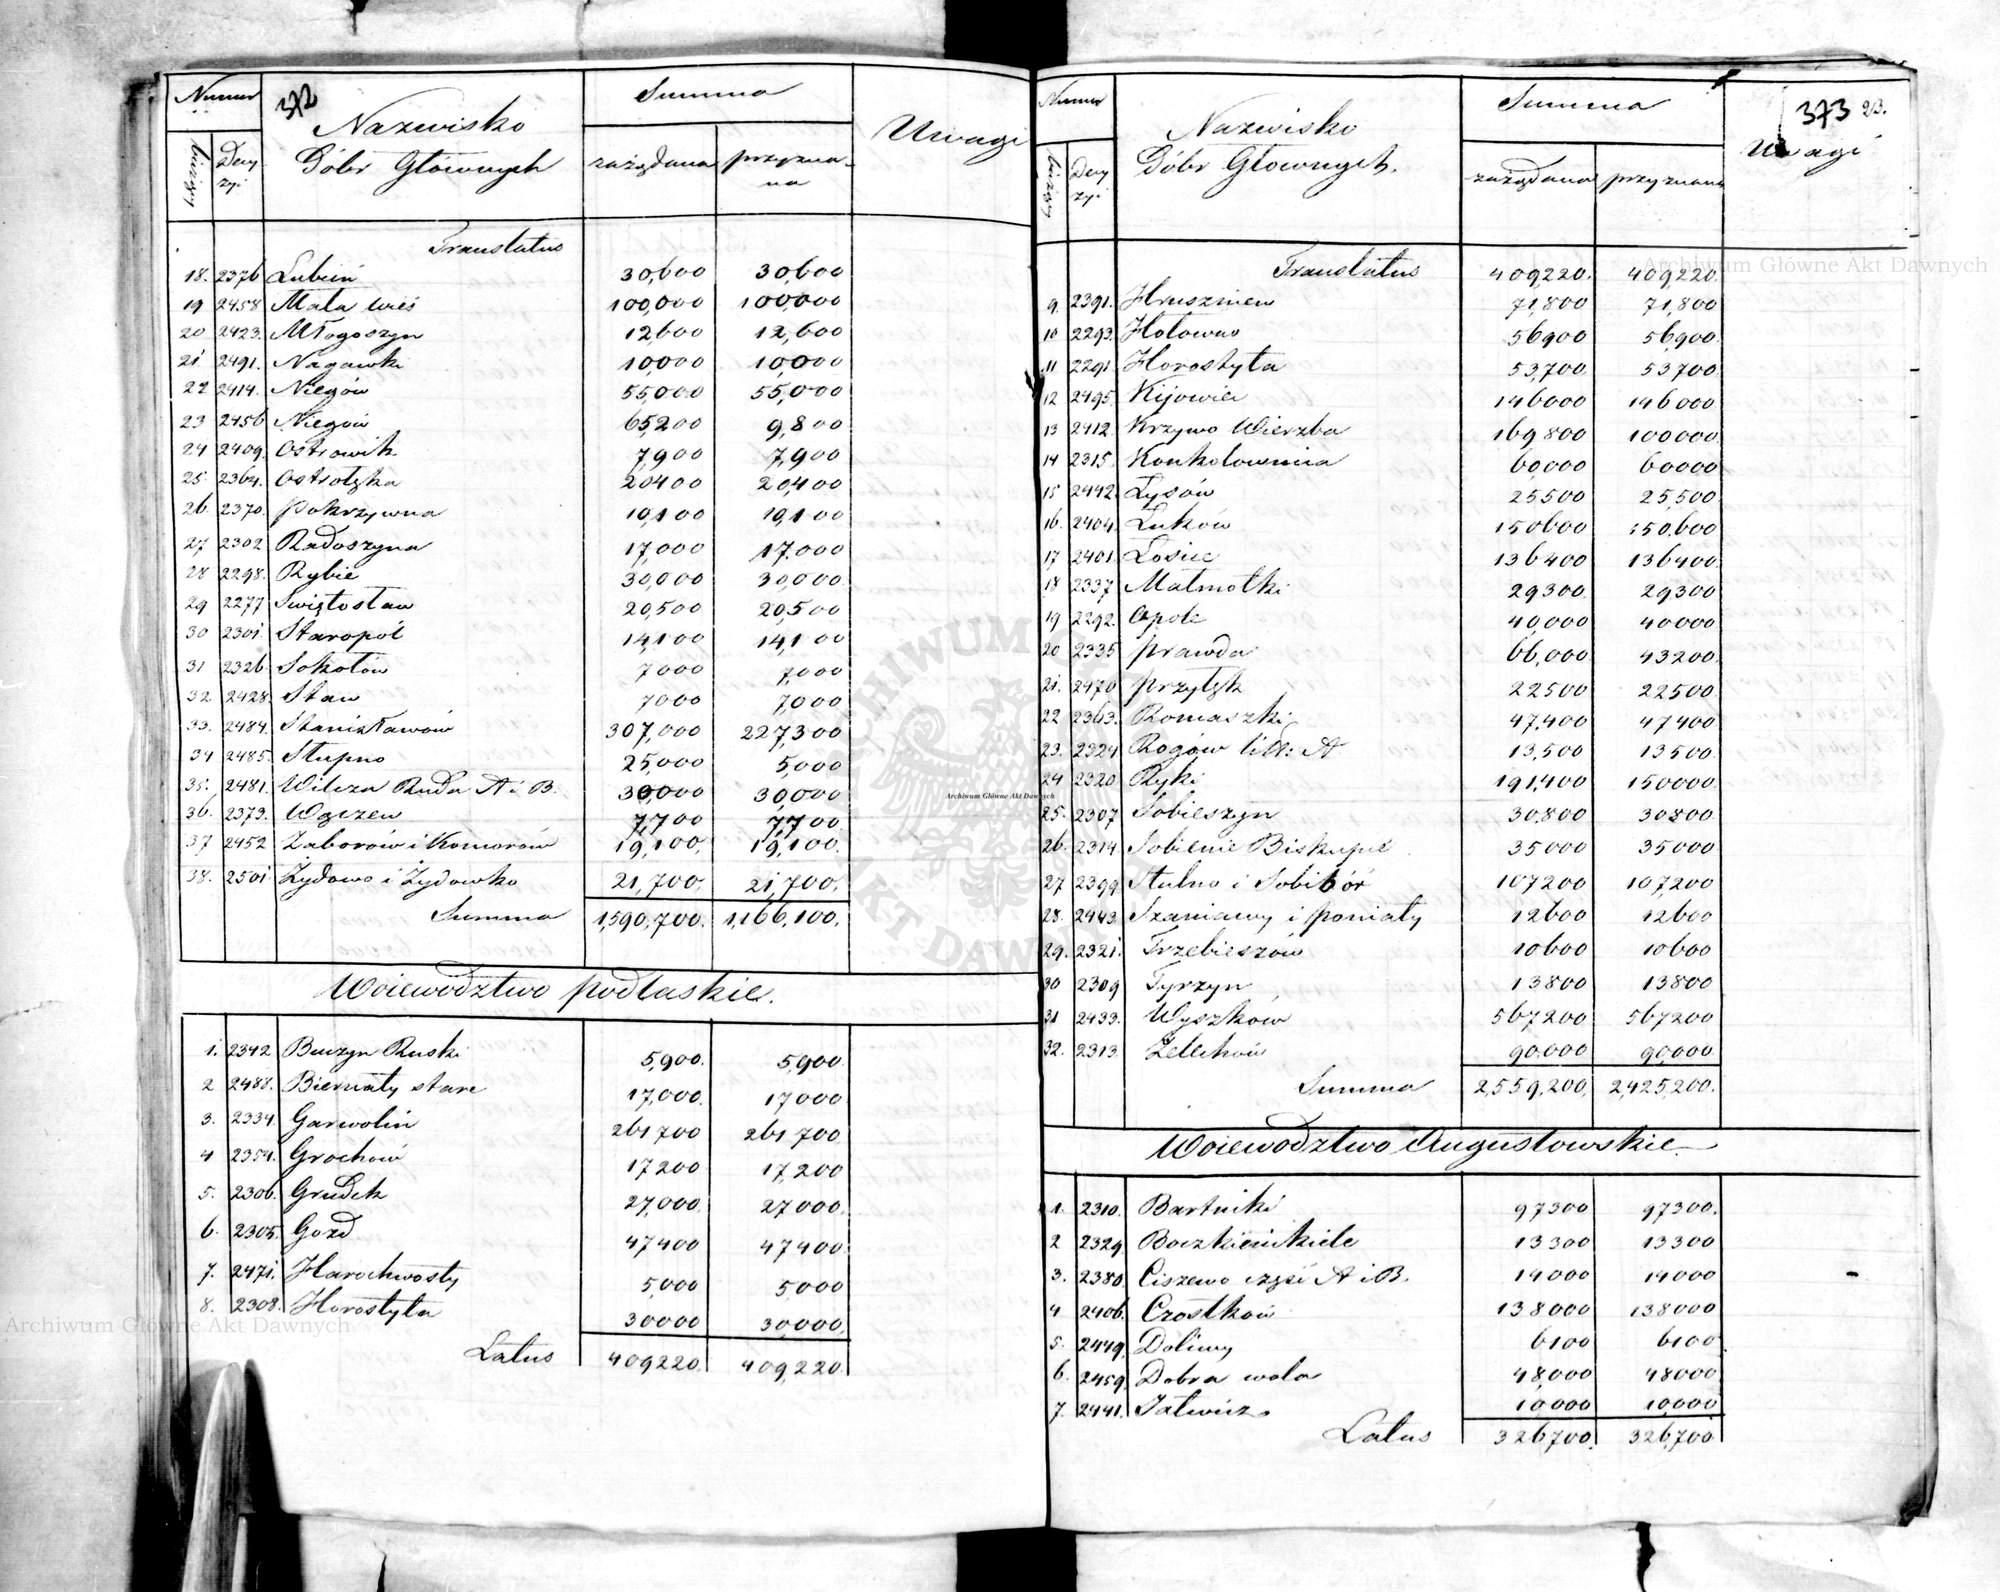 372
Numer
bieżący
Decy
zyi
Nazwisko
Dóbr Głównych
Summa
zażądana
przyzna-
na
Uwagi
Translatus
18. 2376 Lubień 30,600 30,600
19 2458 Mała wieś 100,000 100,000
20 2423. Młogoszyn 12,600 12,600
21 2491. Nagawki 10,000 10,000
22 2414. Niegów 55,000 55,000
23 2456 Niegów 65,200 9,800
24 2409. Ostrowik 7,900 7,900
25. 2364. Ostrołęka 20400 20,400
26. 2370. Pokrzywna 19,100 19,100
27 2302 Radoszyna 17,000 17,000
28 2298. Rybie 30,000 30,000
29 2277 Swiętosław 20,500 20,500
30 2301. Staropól 14,100 14,100
31 2326. Sokołów 7000 7,000
32 2428. Staw 7000 7,000
33. 2484. Stanisławów 307,000 227,300
34 2485. Stupno 25,000 5,000
35. 2481. Wilcza Ruda A i B. 30,000 30,000
36. 2373. Wączew 7,700 7,700
37 2452 Zaborów i Komorów 19,100. 19,100.
38. 2501 Żydowo i Żydówko 21,700. 21,700.
Summa 1,590,700. 1,166,100.
Woiewództwo podlaskie.
1. 2342 Buczyn Ruski 5,900. 5,900.
2 2488. Biernaty stare 17,000. 17000
3. 2334. Garwolin 261700 261,700
4 2354. Grochów 17200 17,200
5. 2306. Grudek 27,000. 27000.
6. 2305. Gozd 47400 47400
7. 2471. Harochwosty 5,000 5,000
8. 2308. Horostyta 30000 30,000.
Latus 409220. 409,220.
373 23.
Numer
bieżący
Decy
zyi
Nazwisko
Dóbr Głownych.
Summa
zażądana
przyznana
Uwagi
Translatus 409,220. 409,220.
9. 2391. Hruszniew 71,800 71,800
10 2293. Hołowno 56900 56,900.
11 2291 Horostyta 53,700. 53700
12 2495. Kijowiec 146000 146000
13 2412. Krzywo Wierzba 169800 100000
14 2315. Konkolownica 60,000 60000
15 2442. Łysów 25500 25,500
16. 2404. Łuków 150600 150,600
17 2401. Łosice 136400 136400.
18 2337 Małmołki 29300 29300
19 2292. Opole 40,000 40000
20 2335 Prawda 66,000 43200.
21. 2470 Przyłęk 22500 22500
22 2363. Romaszki 47,400 47400
23. 2324 Rogów litt: A 13,500 13500.
24 2320 Ryki 191,400 150000.
25. 2307 Sobieszyn 30,800 30800
26. 2314 Sobienie Biskupie 35000 35000
27 2399 Stulno i Sobibór 107200 107,200
28. 2443. Szaniawy i Poniaty 12600 12600
29. 2321. Trzebieszów 10600 10600
30 2309 Tyrzyn 13800 13800
31 2433. Wyszków 567200 567200
32. 2313. Żelechów 90,000 90,000.
Summa 2,559,200, 2,425,200.
Woiewództwo Augustowskie
1. 2310. Bartniki 97300 97300.
2 2329 Boczkienikiele 13300 13300
3. 2380. Ciszewo części A i B. 14000 14000
4 2406. Czostków 138000 138000
5. 2449. Doliwy 6100 6100
6. 2459. Dobra wola 48,000 48000
7. 2441. Jatwiez 10,000 10,000
Latus 326,700. 326,700
Archiwum Główne Akt Dawnych
Archiwum Główne Akt Dawnych
Archiwum Główne Akt Dawnych